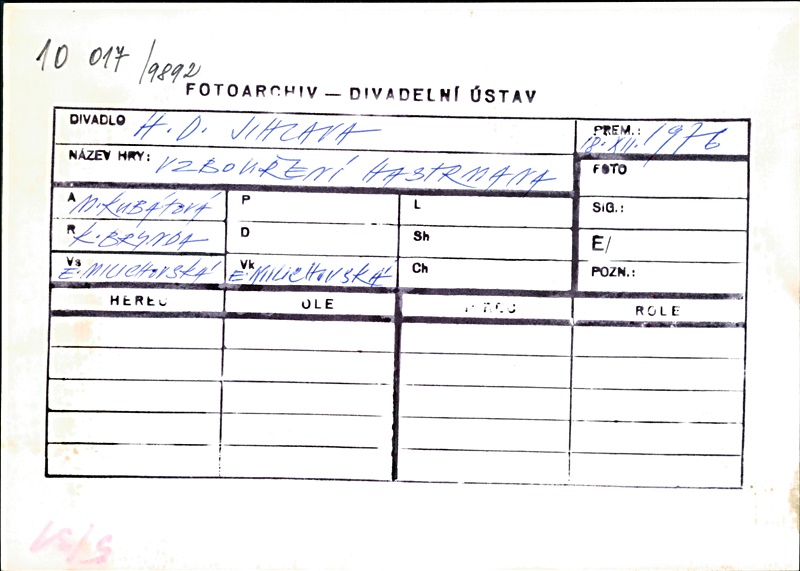 10 017/9892
FOTOARCHIV — DIVADELNÍ ÚSTAV
DIVADLO H. D. JIHLAVA
PREM.: 18. XII. 1976
NÁZEV HRY: VZBOUŘENÍ HASTRMANA
FOTO
SIG.:
E/
POZN.:
A M. KUBÁTOVÁ P L
R K. BRYNDA D Sh
Vs E. MILICHOVSKÁ Vk E. MILICHOVSKÁ Ch
HEREC OLE ROLE